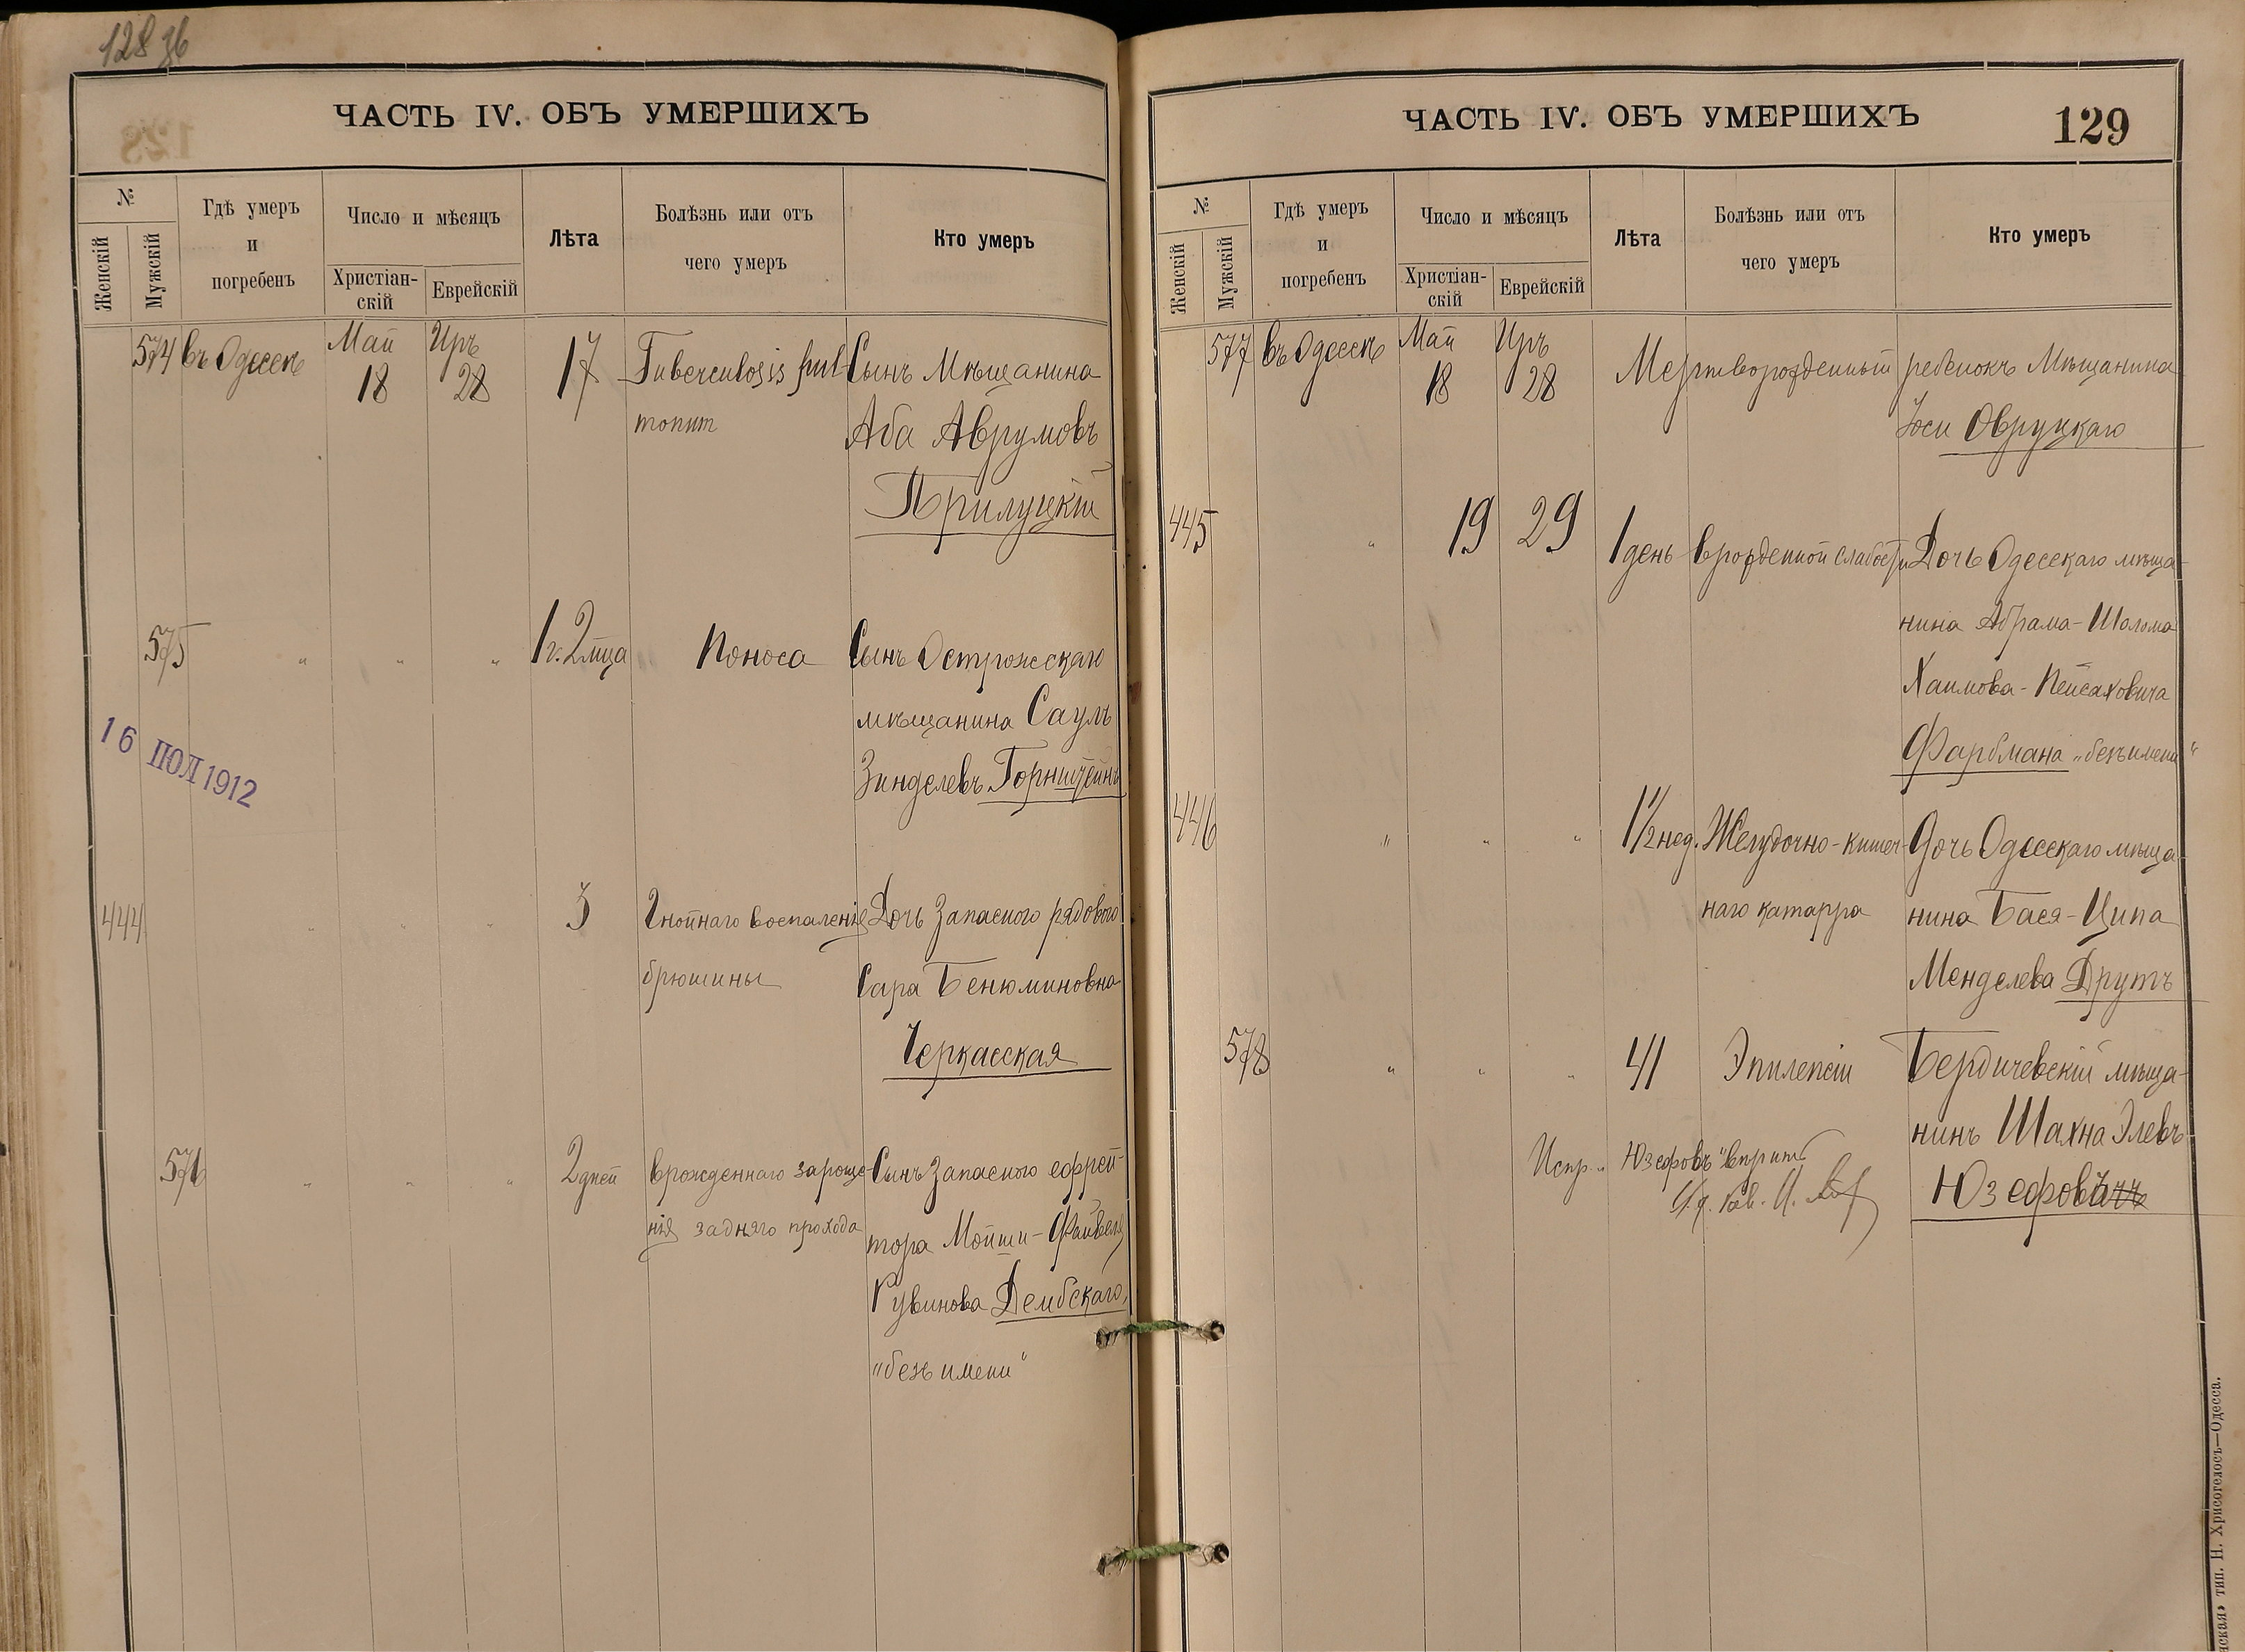 128 зб
ЧАСТЬ IV. ОБЪ УМЕРШИХЪ
№
Женскій
Мужскій
Гдѣ умеръ
и
погребенъ
Число и мѣсяцъ
Христіан-
скій
Еврейскій
Лѣта
Болѣзнь или отъ
чего умеръ
Кто умеръ
574 въ Одессѣ Май 18 Иръ 28 17 Tuberculosis pul- Сынъ Мѣщанина
Аба Аврумовъ
Прилуцкій
575 " " " 1 г. 2 мца Поноса Сынъ Острожскаго
мѣщанина Сауль
Зинделевъ Горнштейнъ
16 ІЮЛ 1912
444 " " " 3 Гнойнаго воспаленія Дочь Запасного рядового
брюшины Сара Бенюминовна
Черкасская
576 " " " 2 дней Врожденнаго зароще- Сынъ Запасного ефрей-
нія задняго прохода тора Мойши-Файвеля
Рувинова Дембскаго,
"безъ имени"
ЧАСТЬ IV. ОБЪ УМЕРШИХЪ
129
№
Женскій
Мужскій
Гдѣ умеръ
и
погребенъ
Число и мѣсяцъ
Христіан-
скій
Еврейскій
Лѣта
Болѣзнь или отъ
чего умеръ
Кто умеръ
577 въ Одессѣ Май 18 Иръ 28 Мертворожденный ребенокъ Мѣщанина
Іоси Овруцкаго
445 " 19 29 1 день Врожденной слабости Дочь Одесскаго мѣща-
нина Абрама-Шолома
Хаимова-Пейсаховича
Фарбмана "безъ имени"
446 " " " 1 1/2 нед. Желудочно-кишеч- Дочь Одесскаго мѣща-
наго катарра нина Бася-Ципа
Менделева Друтъ
578 " " " 41 Эпилепсіи Бердичевскій мѣща-
нинъ Шахна Элевъ
Юзефовъ
Испр. "Юзефовъ" вѣрить
И. д. Рав.
ская» тип. Н. Хрисогелосъ—Одесса.